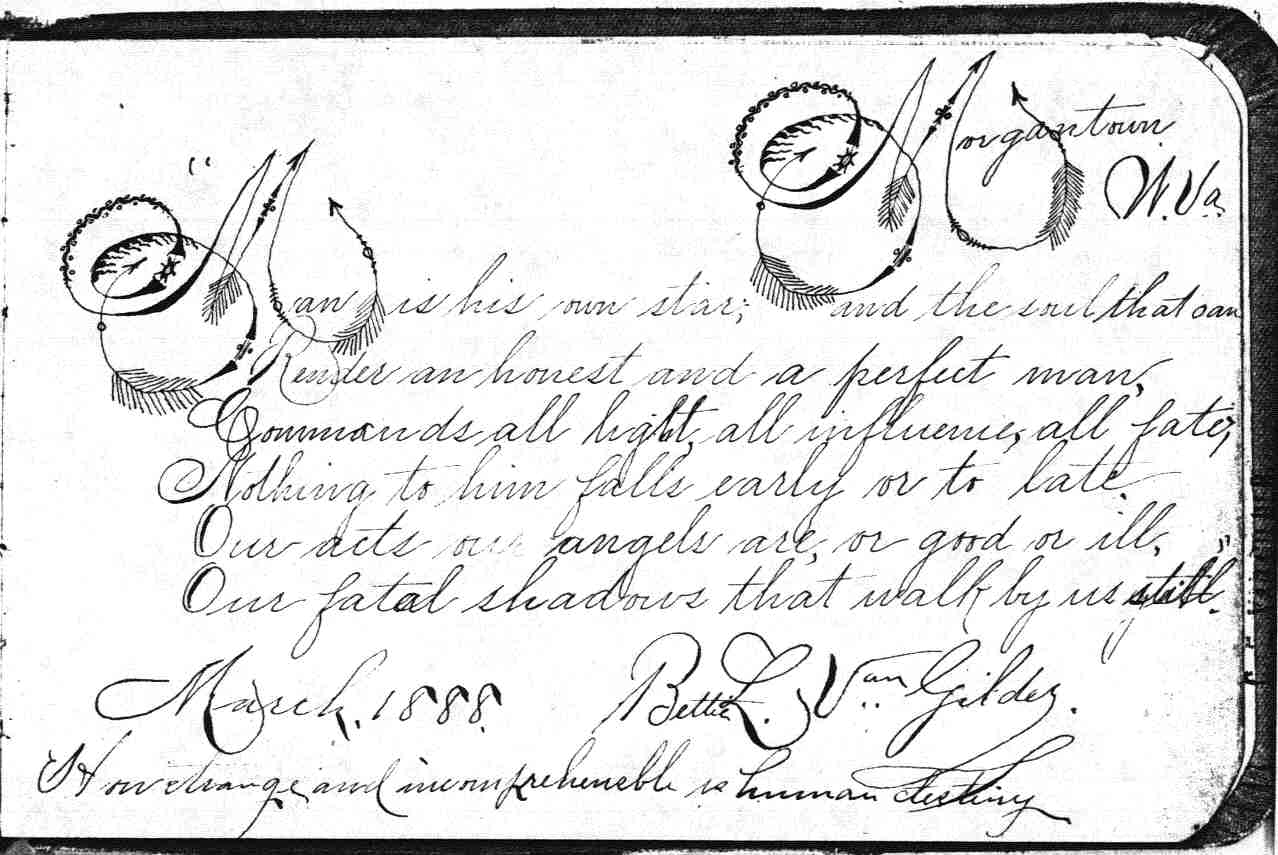 Morgantown
W. Va.
"Man is his own star; and the soul that can
Render an honest and a perfect man,
Commands all light, all influence, all fate;
Nothing to him falls early or to late.
Our acts our angels are, or good or ill,
Our fatal shadows that walk by us still."
March, 1888. Bettie L. Van Gilder.
How strange and incomprehensble is human destiny